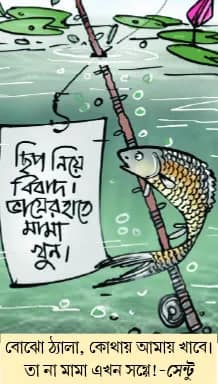 ছিপ নিয়ে
বিবাদ।
ভাগ্নের হাতে
মামা
খুন।
বোঝো ঠ্যালা, কোথায় আমায় খাবে।
তা না মামা এখন সগ্গে!-সেন্টু